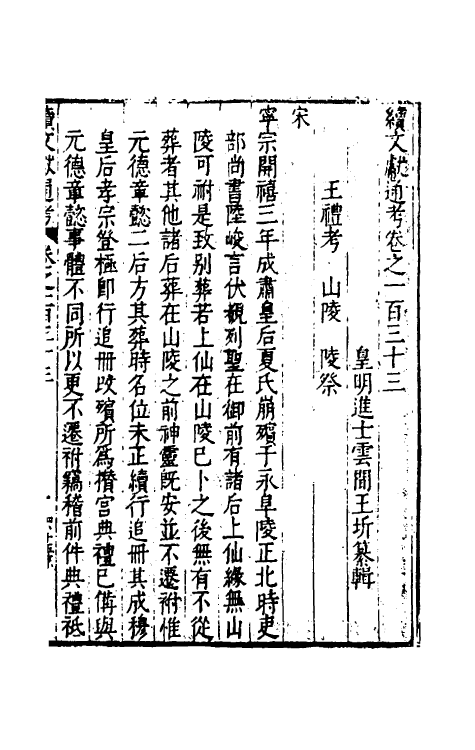 續文獻通考卷之一百三十三
皇明進士雲間王圻纂輯
王禮考 山陵 陵祭
宋
寧宗開禧三年成肅皇后夏氏崩殯于永阜陵正北時吏
部尚書陸峻言伏覩列聖在御前有諸后上仙緣無山
陵可祔是致别葬若上仙在山陵已卜之後無有不從
葬者其他諸后葬在山陵之前神靈既安並不遷祔惟
元德章懿二后方其葬時名位未正續行追冊其成穆
皇后孝宗登極卽行追冊改殯所爲攢宮典禮已備與
元德章懿事體不同所以更不遷祔竊稽前件典禮祗
續文獻通考 卷之一百三十三 一